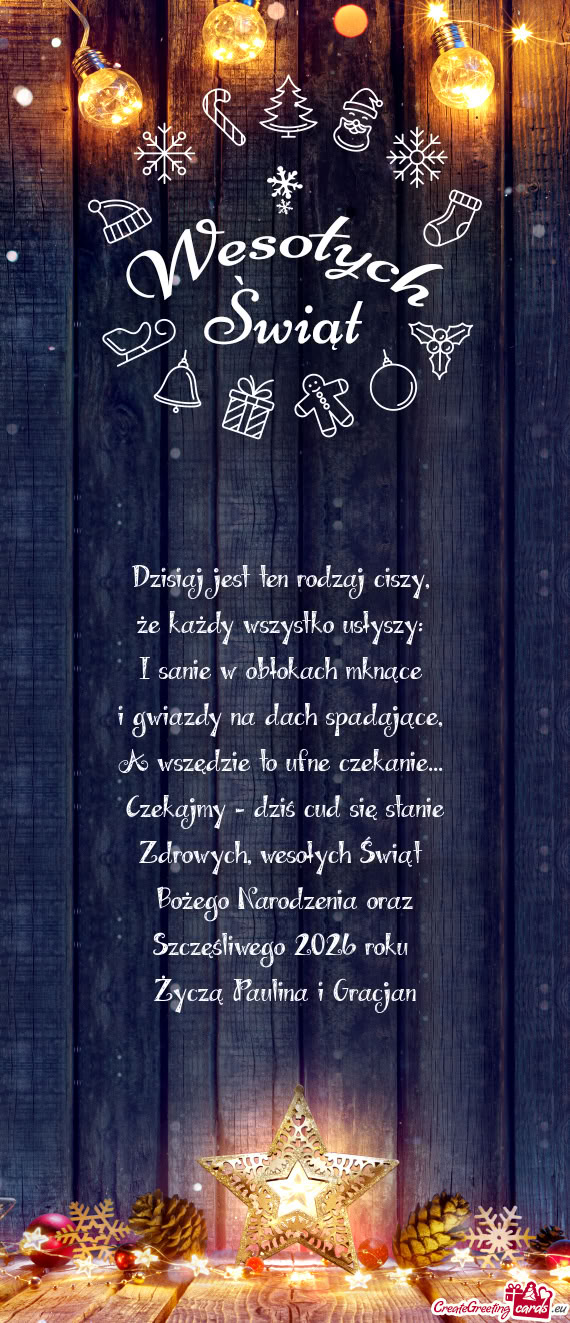 Wesołych
Świąt
Dzisiaj jest ten rodzaj ciszy,
że każdy wszystko usłyszy:
I sanie w obłokach mknące
i gwiazdy na dach spadające,
A wszędzie to ufne czekanie...
Czekajmy - dziś cud się stanie
Zdrowych, wesołych Świąt
Bożego Narodzenia oraz
Szczęśliwego 2026 roku
Życzą Paulina i Gracjan
CreateGreetingcards.eu